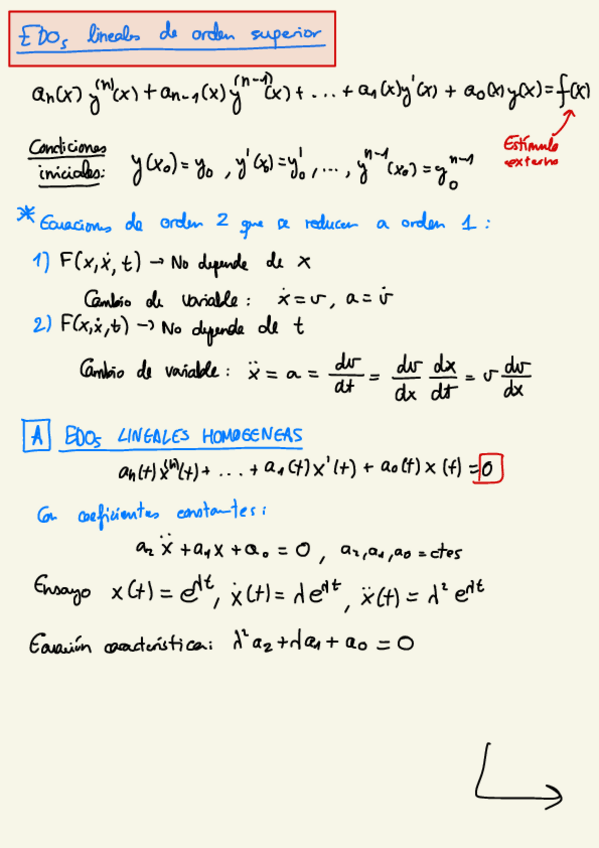 EDOs lineales de orden superior
aₙ(x) y⁽ⁿ⁾(x) + aₙ₋₁(x) y⁽ⁿ⁻¹⁾(x) + ... + a₁(x) y'(x) + a₀(x) y(x) = f(x)
Estímulo
externo
Condiciones
iniciales: y(x₀) = y₀, y'(x₀) = y'₀, ..., yⁿ⁻¹(x₀) = y₀ⁿ⁻¹
* Ecuaciones de orden 2 que se reducen a orden 1:
1) F(x, ẋ, t) → No depende de x
Cambio de variable: ẋ = v, a = v̇
2) F(x, ẋ, t) → No depende de t
Cambio de variable: ẍ = a = dv/dt = dv/dx dx/dt = v dv/dx
A EDOs LINEALES HOMOGENEAS
aₙ(t) x⁽ⁿ⁾(t) + ... + a₁(t) x'(t) + a₀(t) x(t) = 0
Con coeficientes constantes:
a₂ ẍ + a₁x + a₀ = 0, a₂, a₁, a₀ = ctes
Ensayo x(t) = e^λt, ẋ(t) = λe^λt, ẍ(t) = λ² e^λt
Ecuación característica: λ²a₂ + λa₁ + a₀ = 0